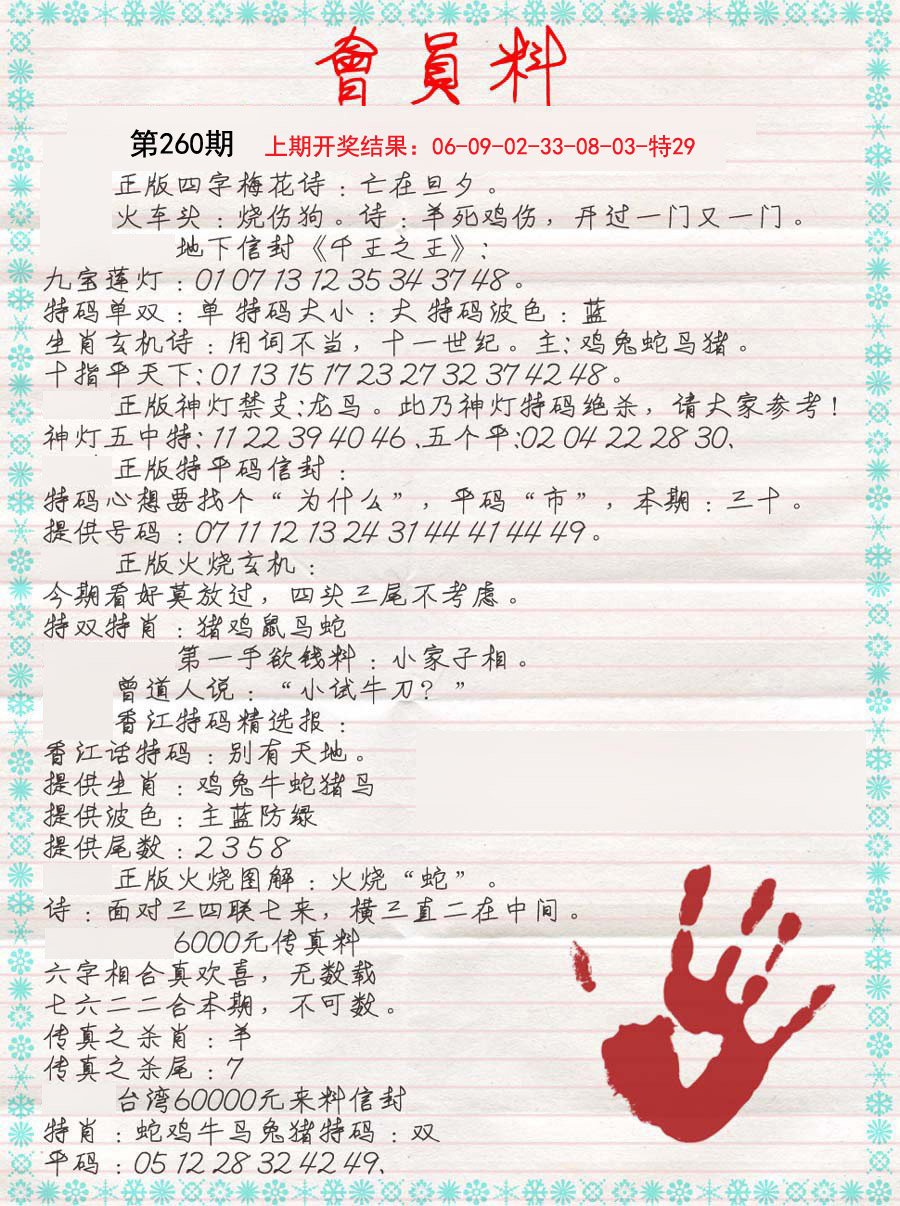 會員料
第260期 上期开奖结果：06-09-02-33-08-03-特29
正版四字梅花诗：亡在旦夕。
火车头：烧伤狗。诗：羊死鸡伤，开过一门又一门。
地下信封《千王之王》：
九宝莲灯：01 07 13 12 35 34 37 48。
特码单双：单 特码大小：大 特码波色：蓝
生肖玄机诗：用词不当，十一世纪。主：鸡兔蛇鸟猪。
十指平天下：01 13 15 17 23 27 32 37 42 48。
正版神灯禁支：龙鸟。此乃神灯特码绝杀，请大家参考！
神灯五中特：11 22 39 40 46、五个平：02 04 22 28 30、
正版特平码信封：
特码心想要找个“为什么”，平码“市”，本期：三十。
提供号码：07 11 12 13 24 31 44 41 44 49。
正版火烧玄机：
今期看好莫放过，四头三尾不考虑。
特双特肖：猪鸡鼠鸟蛇
第一手欲钱料：小家子相。
曾道人说：“小试牛刀？”
香江特码精选报：
香江话特码：别有天地。
提供生肖：鸡兔牛蛇猪鸟
提供波色：主蓝防绿
提供尾数：2 3 5 8
正版火烧图解：火烧“蛇”。
诗：面对三四联七来，横三直二在中间。
6000元传真料
六字相合真欢喜，无数载
七六二二合本期，不可数。
传真之杀肖：羊
传真之杀尾：7
台湾60000元来料信封
特肖：蛇鸡牛鸟兔猪特码：双
平码：05 12 28 32 42 49、